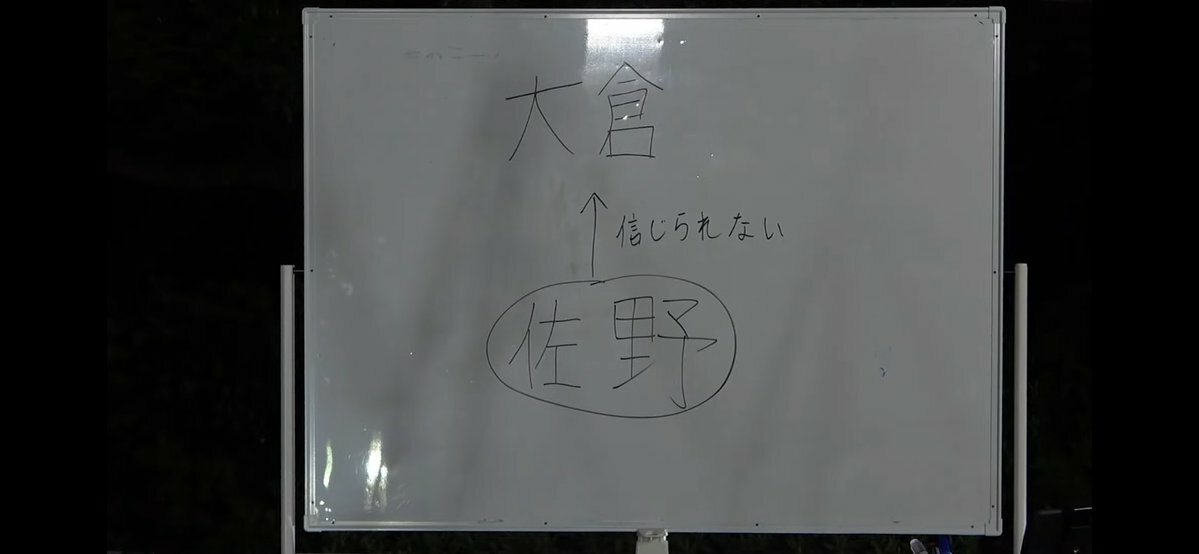 大倉
↑信じられない
佐野